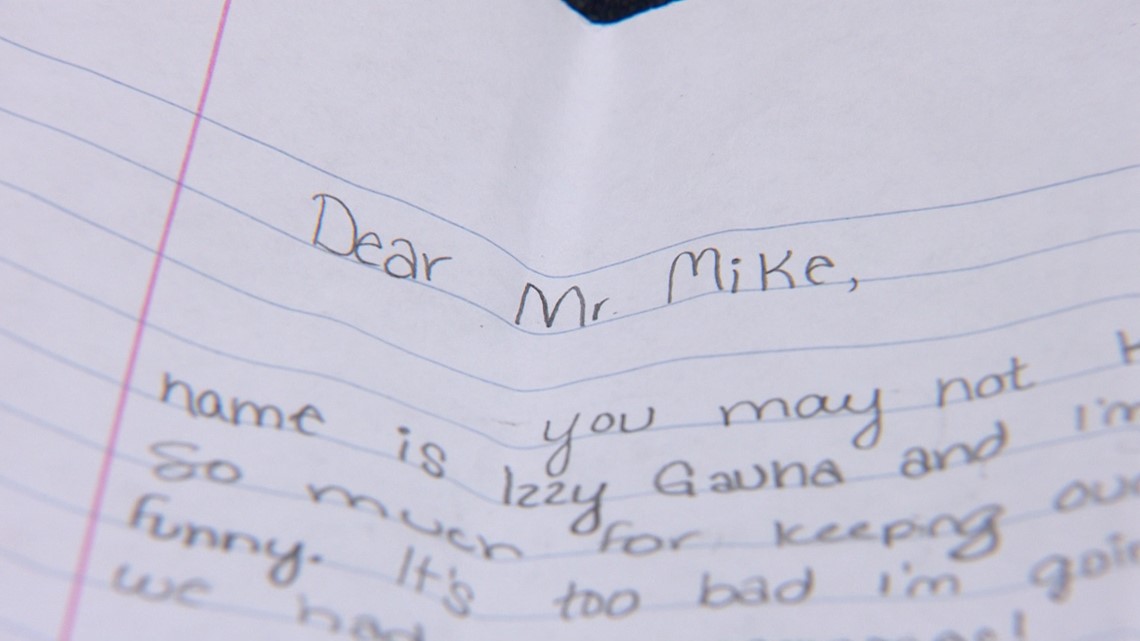 Dear Mr. Mike,
you may not
name is Izzy Gauna and I'm
So much for keeping
funny. It's too bad i'm
we had